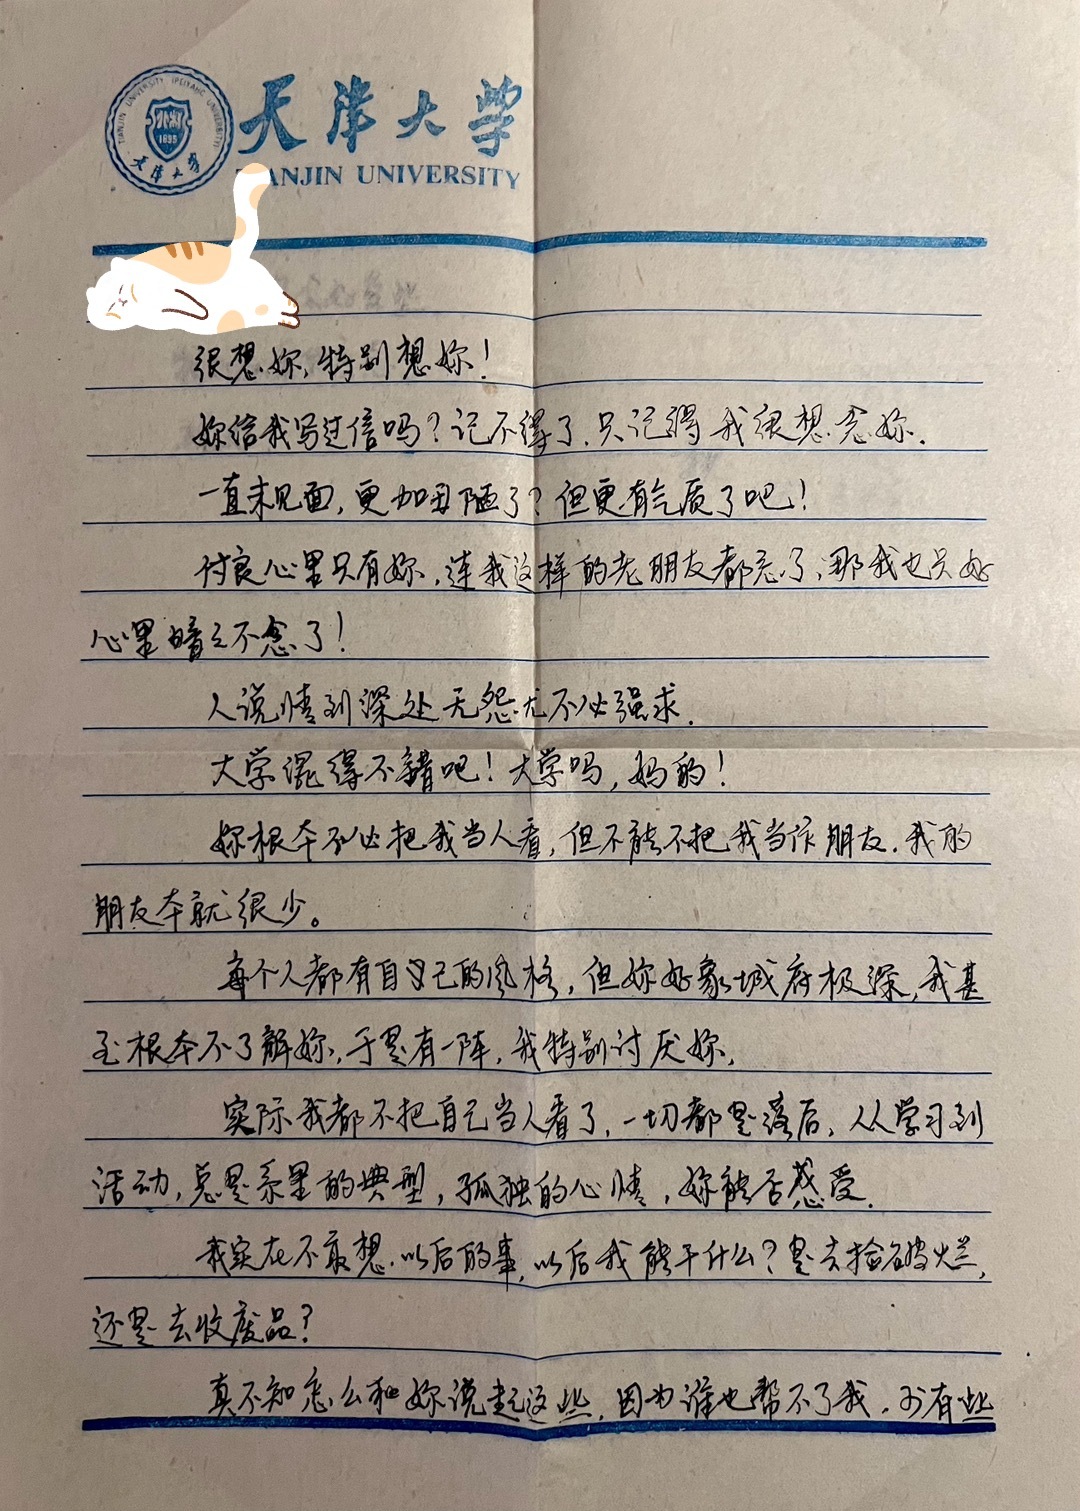 天津大学
TIANJIN UNIVERSITY (PEIYANG UNIVERSITY)
1895
天津大学
TIANJIN UNIVERSITY
很想妳，特别想妳！
妳给我写过信吗？记不得了，只记得我很想念妳．
一直未见面，更加丑陋了？但更有气质了吧！
付良心里只有妳，连我这样的老朋友都忘了，那我也只好
心里暗之不念了！
人说情到深处无怨尤不必强求．
大学混得不错吧！大学吗，妈的！
妳根本不必把我当人看，但不能不把我当作朋友．我的
朋友本就很少。
每个人都有自己的风格，但妳好象城府极深，我甚
至根本不了解妳，于是有一阵，我特别讨厌妳，
实际我都不把自己当人看了，一切都是落后，从学习到
活动，总是系里的典型，孤独的心情，妳能否感受．
我实在不敢想．以后的事，以后我能干什么？是去捡破烂，
还是去收废品？
真不知怎么和妳说起这些．因为谁也帮不了我．少有些